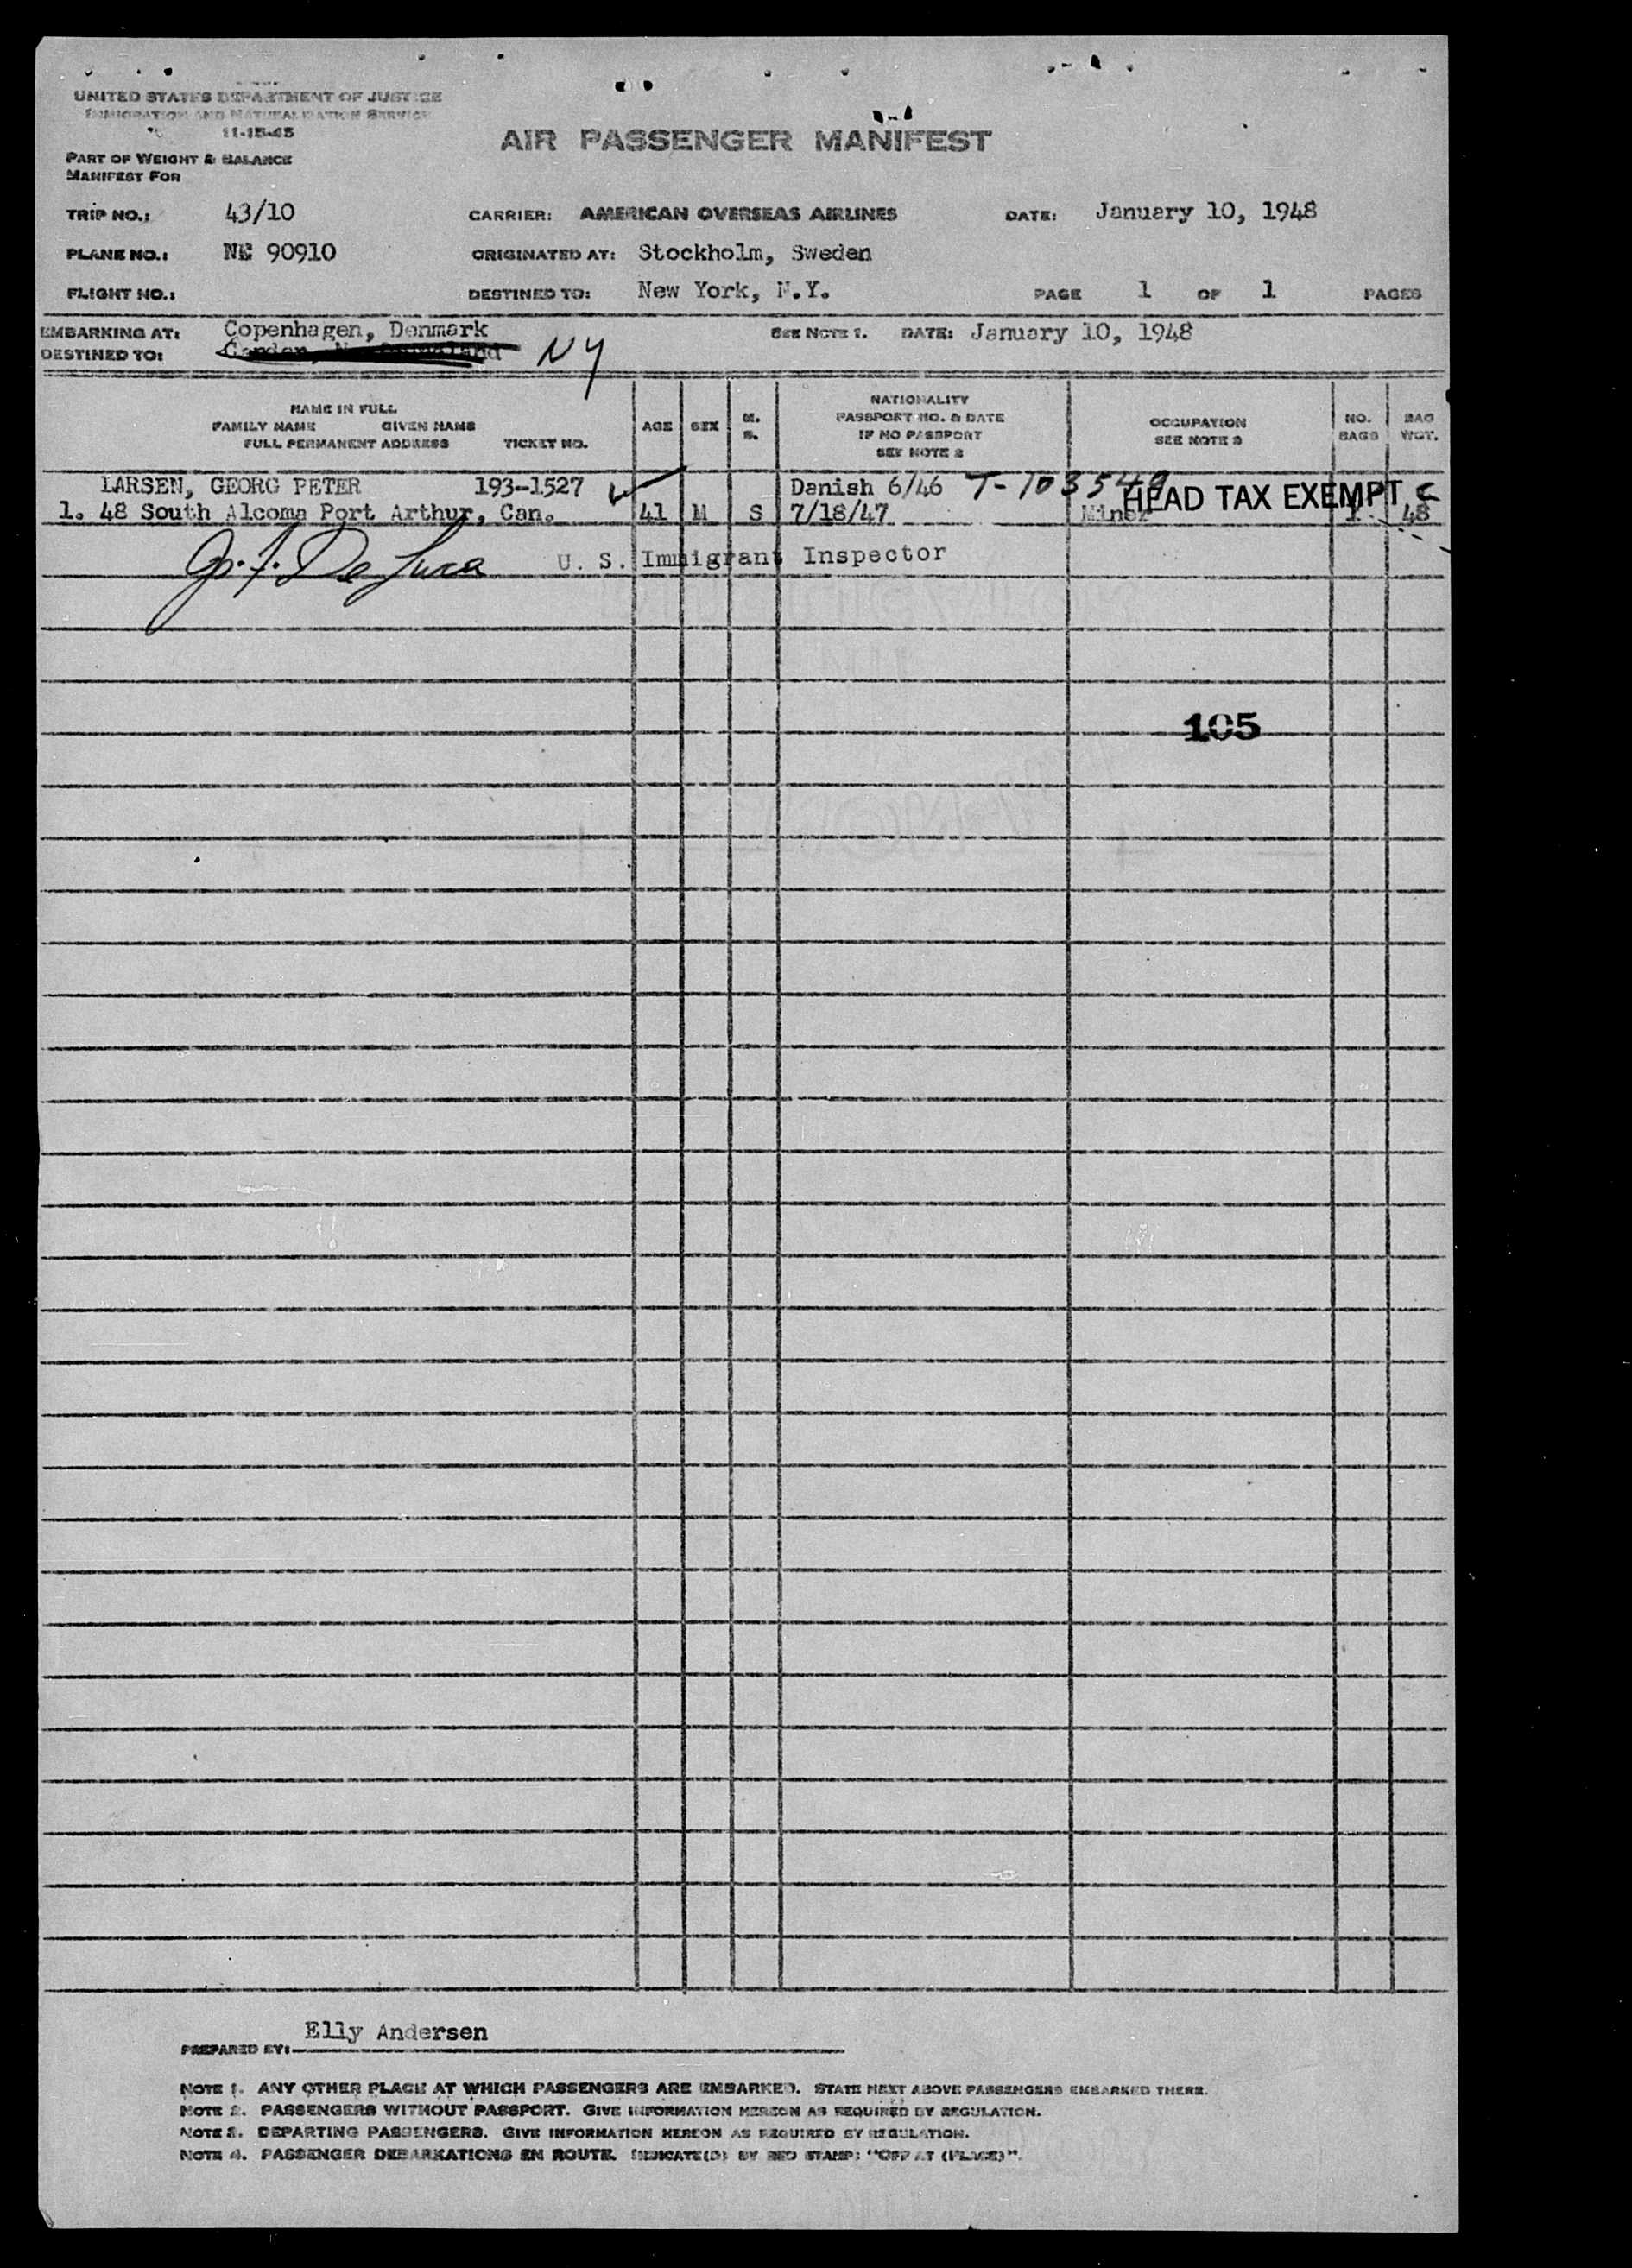 UNITED STATES DEPARTMENT OF JUSTICE
IMMIGRATION AND NATURALIZATION SERVICE
11-15-45
AIR PASSENGER MANIFEST
PART OF WEIGHT & BALANCE
MANIFEST FOR
TRIP NO.: 43/10 CARRIER: AMERICAN OVERSEAS AIRLINES DATE: January 10, 1948
PLANE NO.: NC 90910 ORIGINATED AT: Stockholm, Sweden
FLIGHT NO.: DESTINED TO: New York, N.Y. PAGE 1 OF 1 PAGES
EMBARKING AT: Copenhagen, Denmark SEE NOTE 1. DATE: January 10, 1948
DESTINED TO: NY
NAME IN FULL
FAMILY NAME GIVEN NAME
FULL PERMANENT ADDRESS TICKET NO.
AGE SEX M. S.
NATIONALITY
PASSPORT NO. & DATE
IF NO PASSPORT
SEE NOTE 2
OCCUPATION
SEE NOTE 3
NO. BAGS
BAG WGT.
LARSEN, GEORG PETER 193-1527 Danish 6/46 T-103549 HEAD TAX EXEMPT C
1. 48 South Alcoma Port Arthur, Can. 41 M S 7/18/47 Miner 1 48
U. S. Immigrant Inspector
105
PREPARED BY: Elly Andersen
NOTE 1. ANY OTHER PLACE AT WHICH PASSENGERS ARE EMBARKED. STATE NEXT ABOVE PASSENGERS EMBARKED THERE.
NOTE 2. PASSENGERS WITHOUT PASSPORT. GIVE INFORMATION HEREON AS REQUIRED BY REGULATION.
NOTE 3. DEPARTING PASSENGERS. GIVE INFORMATION HEREON AS REQUIRED BY REGULATION.
NOTE 4. PASSENGER DEBARKATIONS EN ROUTE. INDICATE(D) BY RED STAMP: "OFF AT (PLACE)".